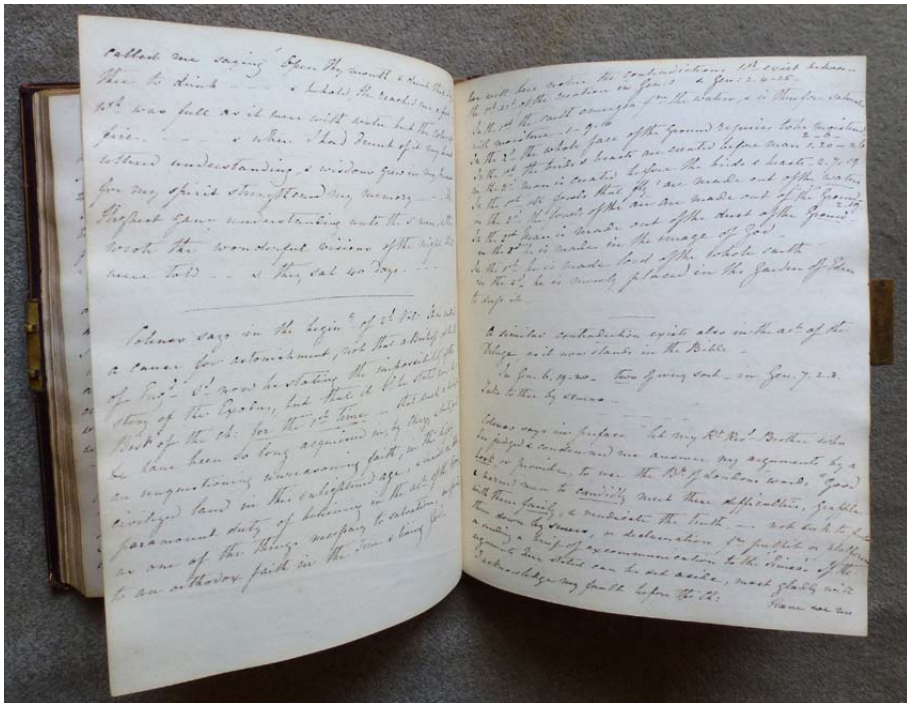 called me saying Open thy mouth & drink that I
thee to drink - - - & behold, He reached me a full
wch was full as it were with water but the colour
fire - - - - & when I had drunk of it my heart
uttered understanding & wisdom grew in my breast
for my spirit strengthened my memory - - The
Highest gave understanding unto the 5 men, & they
wrote the wonderful visions of the night that
were told - - & they sat 40 days - - -
Colenso says in the begin.g of 2d Vol:
a cause for astonishment, not that a Bishop of the
of Eng.d sd. now be stating the impossibility of the
story of the Exodus, but that it sd. be stated by
Bish of the Ch: for the 1st time - that such a
have been so long acquiesced in, by clergy &
an unquestioning unreasoning faith, in this
civilized land in this enlightened age, & with
paramount duty of believing in the acct of the
as one of the things necessary to salvation,
to an orthodox faith in the true & living God
You will here notice the contradictions wch exist between
the 1st acct of the creation in Gen: 1 & Gen: 2. 4-25-
In the 1st the earth emerges from the waters, & is therefore saturated
with moisture - 1. 9. 10
in the 2d the whole face of the ground requires to be moistened
2 - 6
In the 1st the birds & beasts are created before man 1. 20 - 26
in the 2d man is created before the birds & beasts - 2. 7. 19
In the 1st all fowls that fly are made out of the waters
in the 2d the fowls of the air are made out of the Ground
In the man is made out of the dust of the Ground
in the is made in the image of God -
In the 1st he is made lord of the whole earth
in the 2d he is merely placed in the Garden of Eden
to keep it
A similar contradiction exists also in the acct of the
Deluge as it now stands in the Bible -
in Gen: 6. 19. 20 - two of every sort - in Gen: 7. 2. 3.
take to thee by sevens -
Colenso says in preface "Let my Rt Revd Brother who
has judged & condemned me answer my arguments by a
book, or provide, to use the Bp of London's words "Good
& learned men to candidly meet these difficulties, grapple
with them fairly, & vindicate the truth - not seek to
them down by sneers, or declamation, fm pulpit or platform
or sending a Brief of excommunication to the
arguments here stated can be set aside, most gladly will
I acknowledge my fault before the Ch:
Have we no